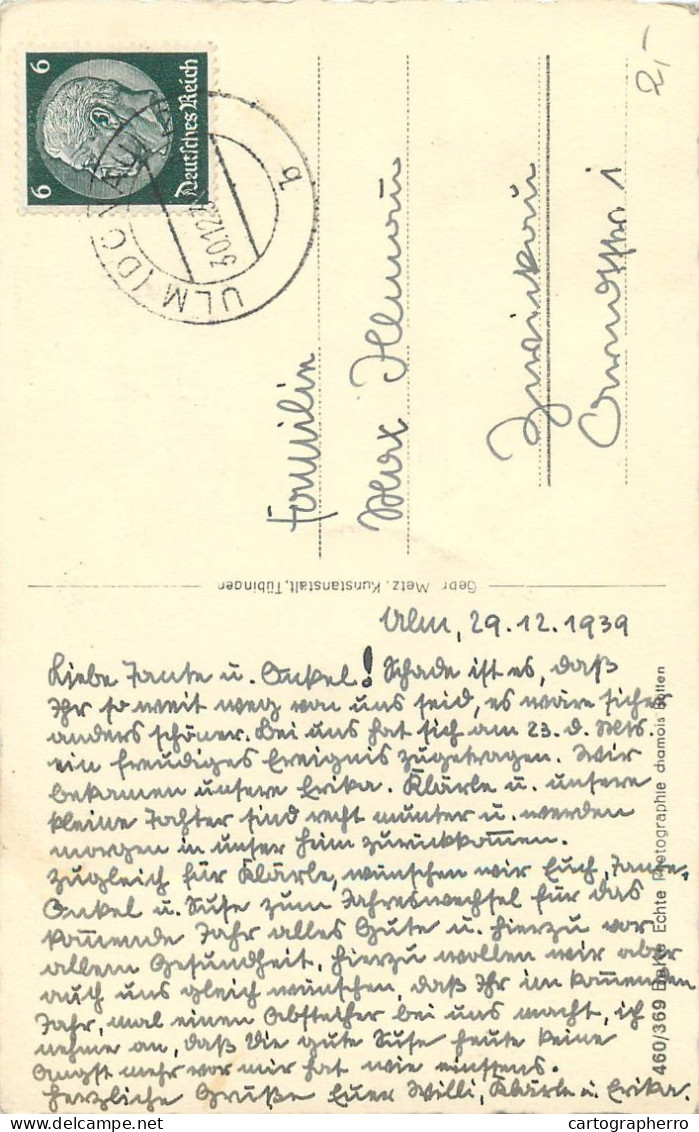 2,-
6 6
Deutsches Reich
ULM (DONAU)
30.12.3
b
Familie
Max
Zwickau
1
Gebr. Metz, Kunstanstalt, Tübingen
Ulm, 29.12.1939
Liebe Tante u. Onkel! Schade ist es, daß
Ihr so weit weg von uns seid, es wäre sicher
anders schöner. Bei uns hat sich am 23. d. Mts.
ein freudiges Ereignis zugetragen. Wir
bekamen unsere Erika. Klärle u. unsere
kleine Tochter sind recht munter u. werden
morgen in unser Heim zurückkom̅en.
Zugleich für Klärle, wünschen wir Euch, Tante,
Onkel u. Suse zum Jahreswechsel für das
kom̅ende Jahr alles Gute u. hierzu vor
allem Gesundheit, hierzu wollen wir aber
auch uns gleich wünschen, daß Ihr im kom̅enden
Jahr, mal einen Abstecher bei uns macht, ich
nehme an, daß die gute Suse heute keine
Angst mehr vor mir hat wie einstens.
Herzliche Grüße Euer Willi, Klärle u. Erika.
460/369 Echte Photographie chamois
cartographerro
cartographerro.com